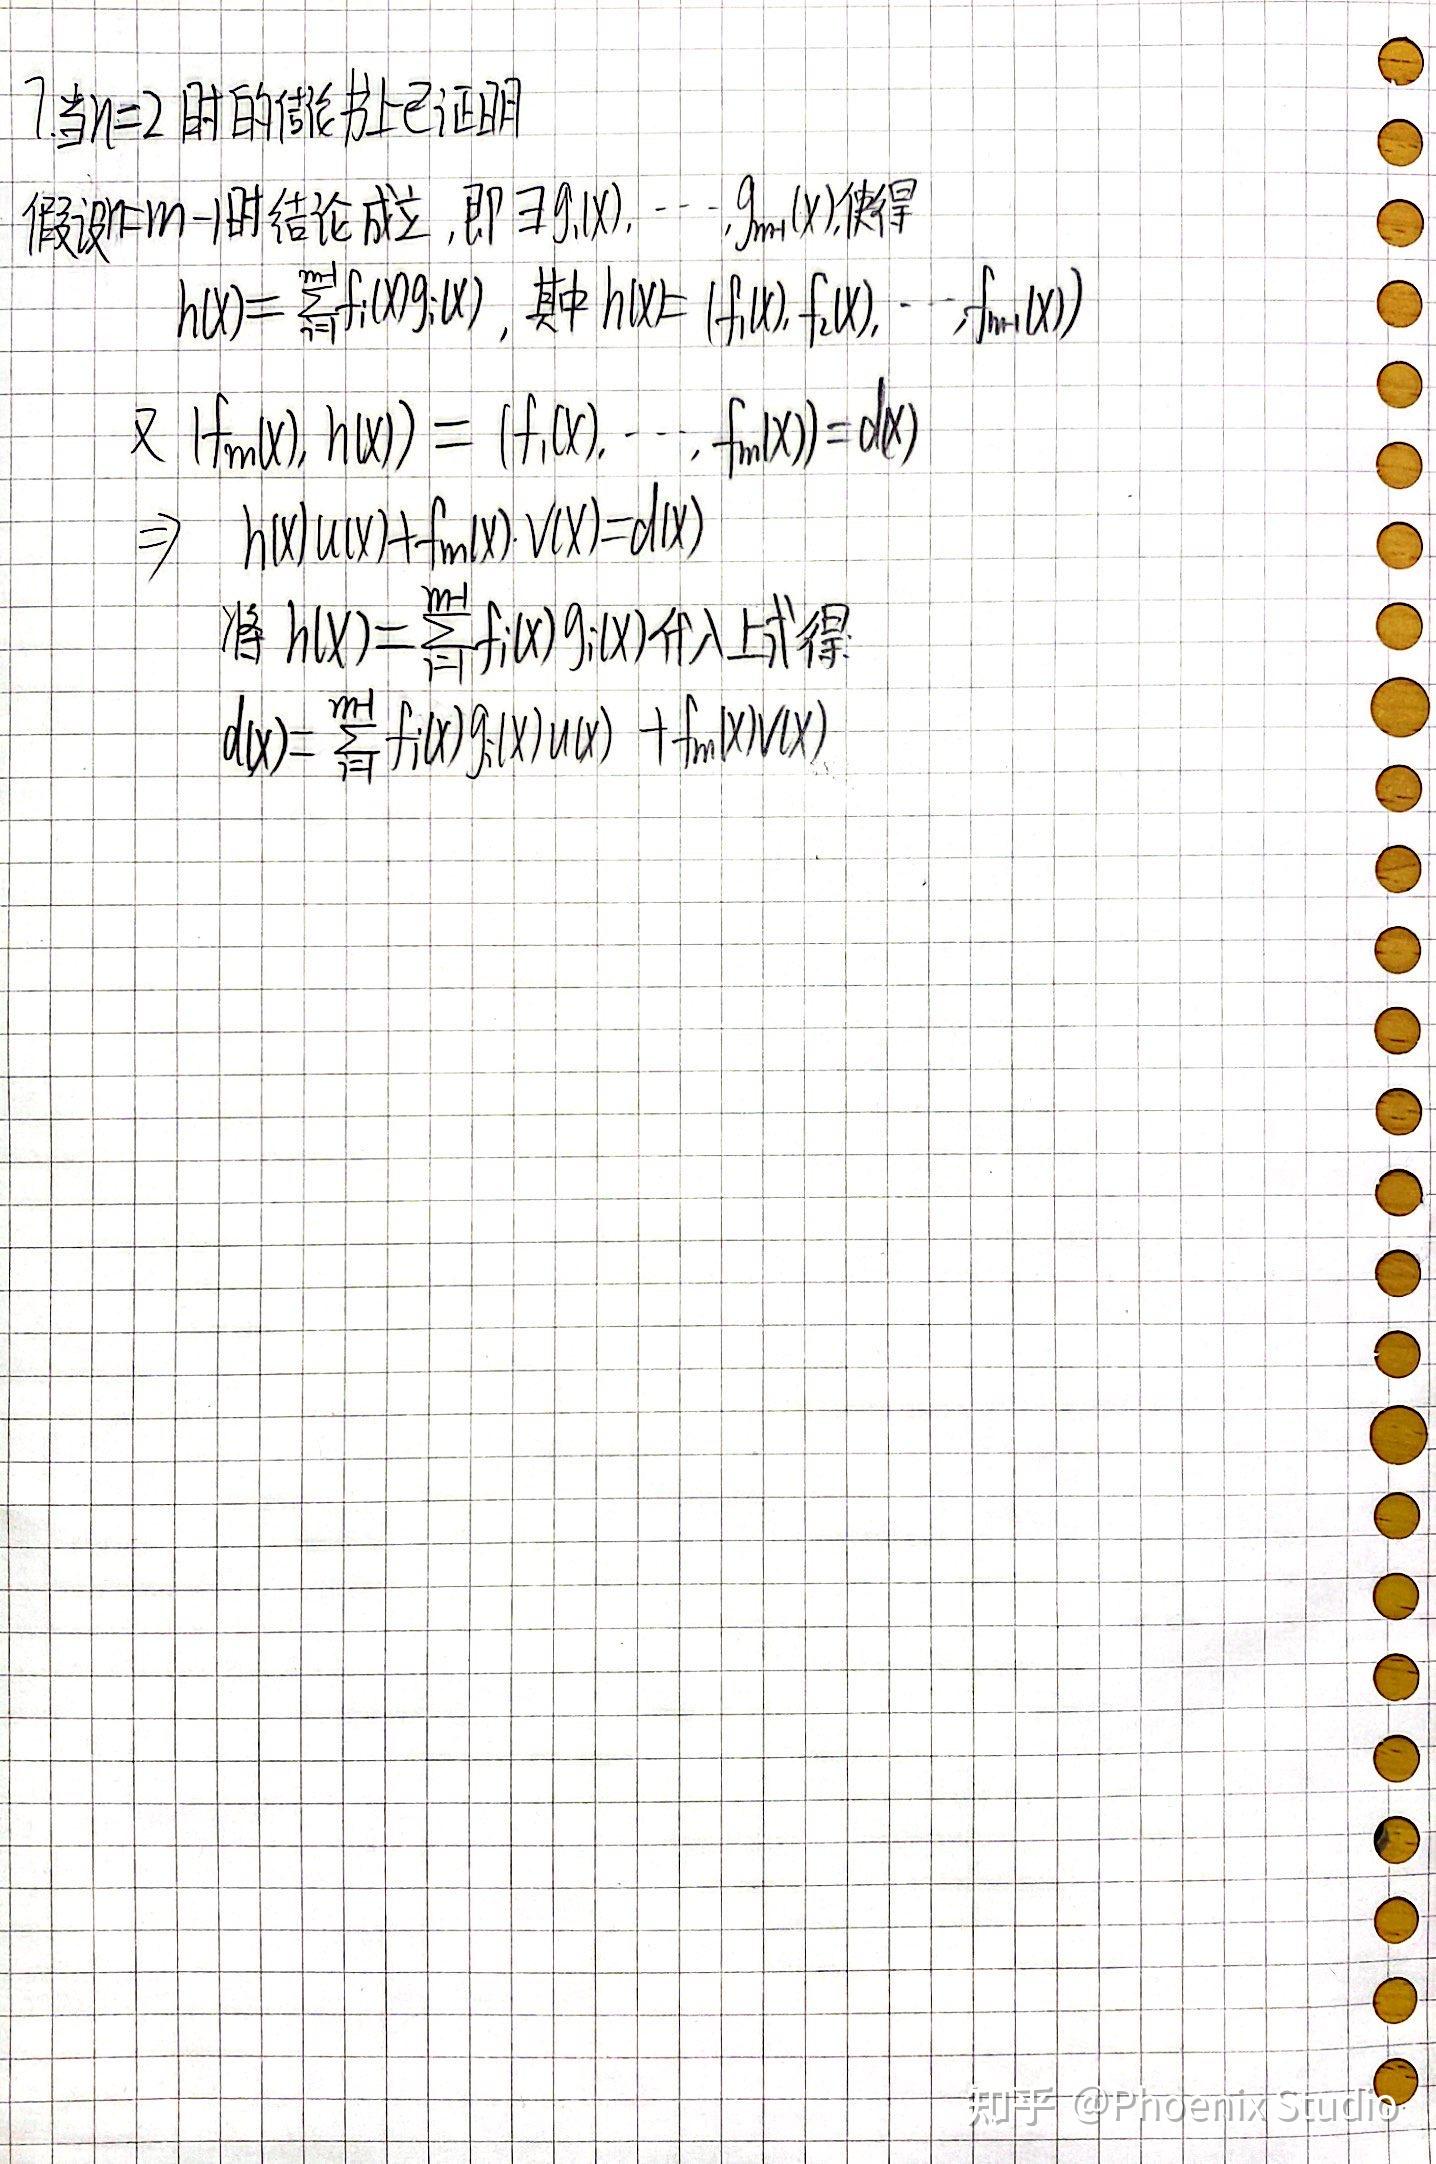 7.当n=2时的结论书上已证明
假设n=m-1时结论成立,即∃g₁(x),…,gₘ₋₁(x),使得
h(x)=∑_{i=1}^{m-1}fᵢ(x)gᵢ(x),其中h(x)=(f₁(x),f₂(x),…,fₘ₋₁(x))
又(fₘ(x),h(x))=(f₁(x),…,fₘ(x))=d(x)
⇒ h(x)u(x)+fₘ(x)·v(x)=d(x)
将h(x)=∑_{i=1}^{m-1}fᵢ(x)gᵢ(x)代入上式得:
d(x)=∑_{i=1}^{m-1}fᵢ(x)gᵢ(x)u(x)+fₘ(x)v(x)
知乎 @Phoenix Studio